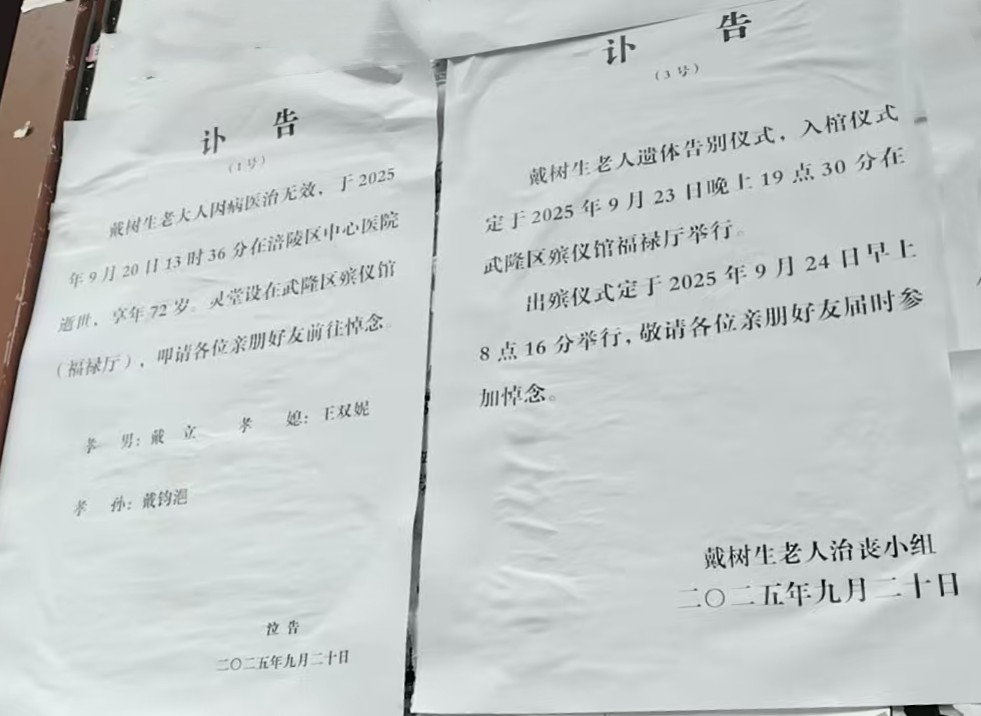 讣 告
（1号）
戴树生老大人因病医治无效，于2025
年9月20日13时36分在涪陵区中心医院
逝世，享年72岁。灵堂设在武隆区殡仪馆
（福禄厅），叩请各位亲朋好友前往悼念
孝 男：戴 立 孝 媳：王双妮
孝 孙：戴钧滟
泣告
二〇二五年九月二十日
讣 告
（3号）
戴树生老人遗体告别仪式，入棺仪式
定于2025年9月23日晚上19点30分在
武隆区殡仪馆福禄厅举行。
出殡仪式定于2025年9月24日早上
8点16分举行，敬请各位亲朋好友届时参
加悼念。
戴树生老人治丧小组
二〇二五年九月二十日